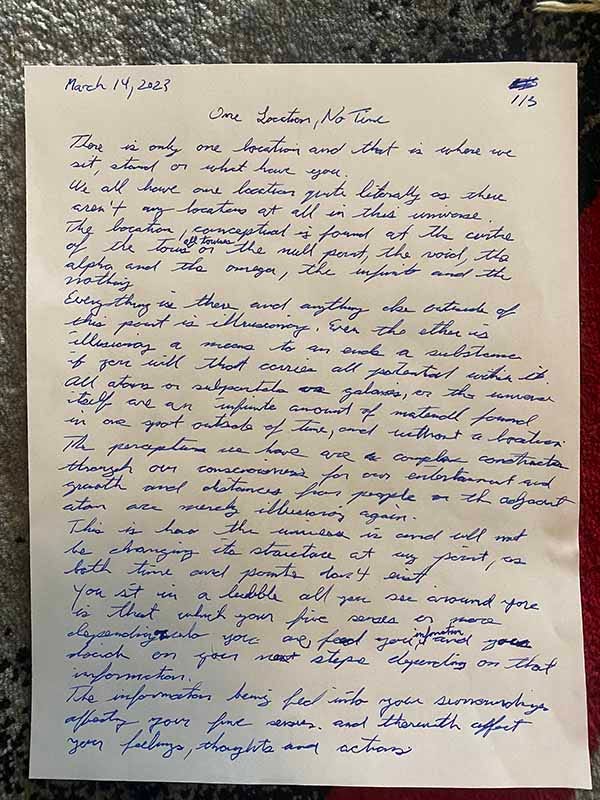 March 14, 2023
1/3
One Location, No Time
There is only one location and that is where we
sit, stand or what have you.
We all have one location quite literally as there
aren't any locations at all in this universe.
The location, conceptual is found at the centre
of the torus all toruses or the null point, the void, the
alpha and the omega, the infinite and the
nothing
Everything is there and anything else outside of
this point is illusionary. Even the ether is
illusionary a means to an ends a substance
if you will that carries all potential within it.
All atoms or galaxies, or the universe
itself are an infinite amount of found
in one spot outside of time, and without a location.
The perceptions we have are a complex
through our consciousness for our entertainment and
growth and distances from people or the adjacent
atom are merely again.
This is how the universe is and will not
be changing its structure at any point, as
both time and points don't exist
You sit in a bubble all you see around you
is that which your five senses or more
depending who you are, feed you, information and you
on your next steps depending on that
information.
The information being fed into your surroundings
your five senses. and therewith affect
your feelings, thoughts and actions